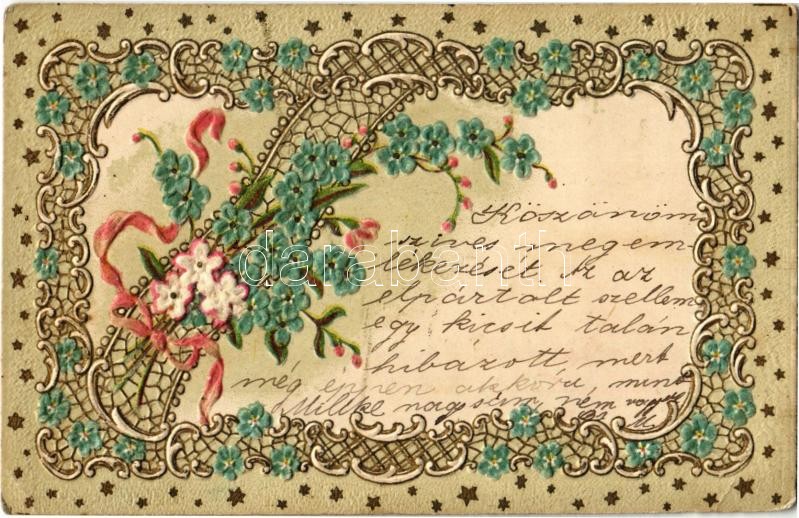 Köszönöm
szives megem-
lékezését Az az
elpártolt szellem
egy kicsit talán
hibázott mert
még éppen akkora, mint
nagysám, nem vagyok
darabanth